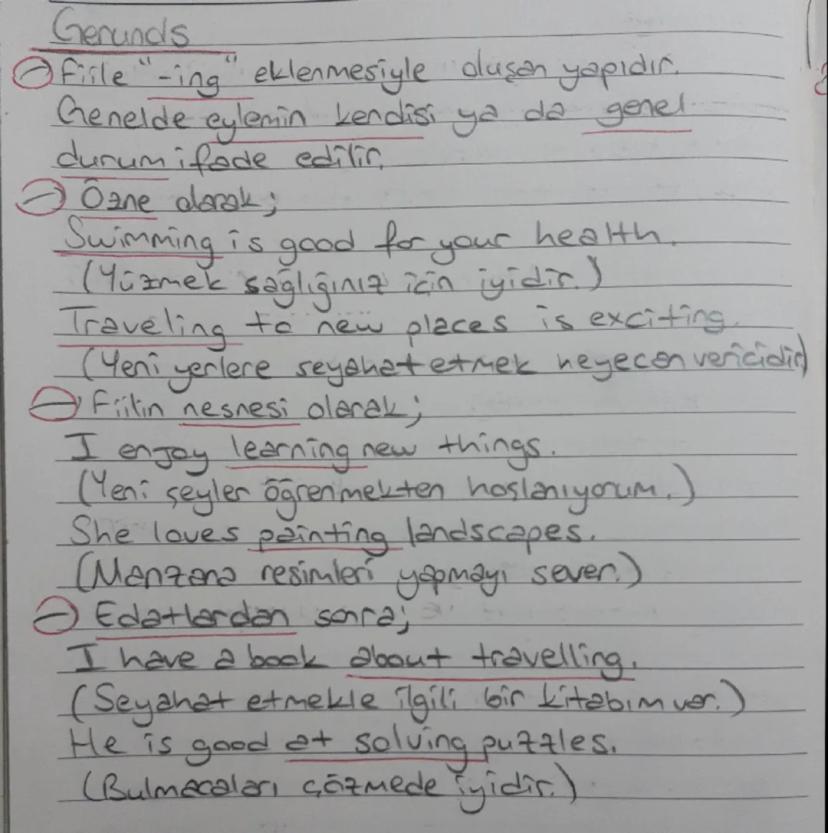 Gerunds
- Fiile "-ing" eklenmesiyle oluşan yapıdır.
Genelde eylemin kendisi ya da genel
durum ifade edilir.
- Özne olarak;
Swimming is good for your health.
(Yüzmek sağlığınız için iyidir.)
Traveling to new places is exciting.
(Yeni yerlere seyahat etmek heyecan vericidir)
- Fiilin nesnesi olarak;
I enjoy learning new things.
(Yeni şeyler öğrenmekten hoşlanıyorum.)
She loves painting landscapes.
(Manzara resimleri yapmayı sever.)
- Edatlardan sonra;
I have a book about travelling.
(Seyahat etmekle ilgili bir kitabım var.)
He is good at solving puzzles.
(Bulmacaları çözmede iyidir.)